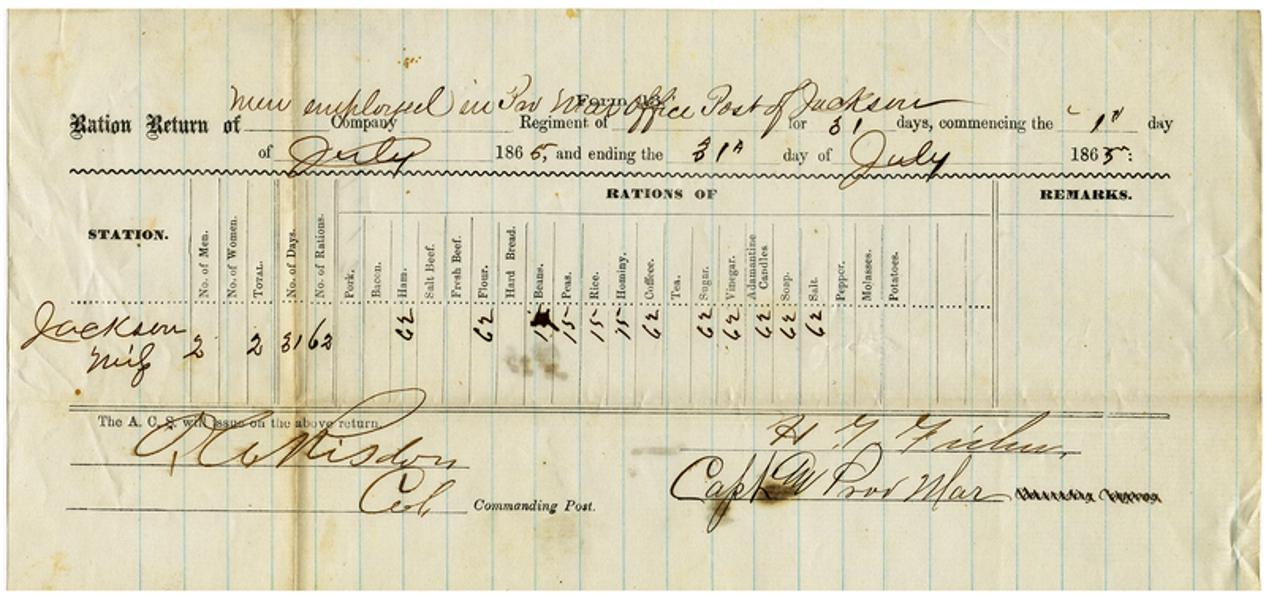 Form 13.
Men employed in Pro Mar Office Post of Jackson
Ration Return of Company Regiment of for 31 days, commencing the 1st day
of July 1865, and ending the 31st day of July 1865:
RATIONS OF REMARKS.
STATION. No. of Men. No. of Women. TOTAL. No. of Days. No. of Rations. Pork. Bacon. Ham. Salt Beef. Fresh Beef. Flour. Hard Bread. Beans. Peas. Rice. Hominy. Coffee. Tea. Sugar. Vinegar. Adamantine Candles Soap. Salt. Pepper. Molasses. Potatoes.
Jackson 2 2 31 62 62 62 15 15 15 62 62 62 62 62 62
Miss
The A. C. S. will issue on the above return.
Risdon H
Col Commanding Post. Capt Prov Mar